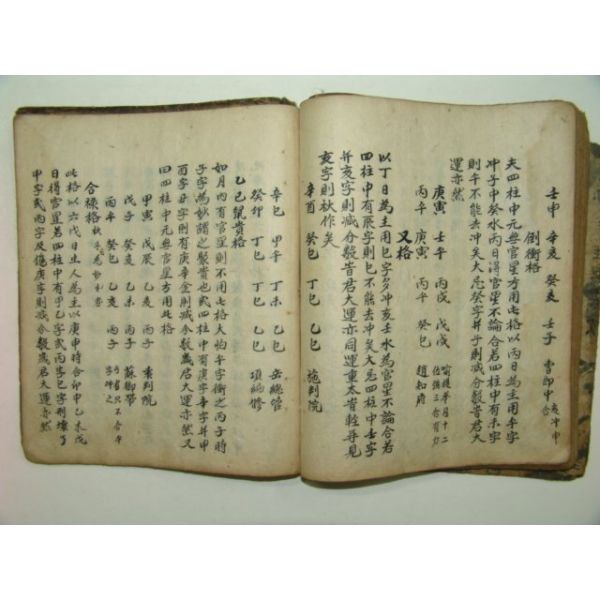 壬申 辛亥 癸亥 壬子 曺郎中
倒衝格
夫四柱中元無官星方用此格以丙日為主用午字
冲子中癸水丙日得官星不論合若四柱中有未字
則午不能去冲矣大忌癸字幷子則减分數耆君大
運亦然
庚寅 壬午 丙戌 戊戌
丙午 庚寅 丙午 癸巳 趙知府
又格
以丁日為主用巳字多冲亥壬水為官星不論合若
四柱中有辰字則巳不能去冲矣大忌四柱中壬字
幷亥字則减分數耆君大運亦同運重太耆輕再見
亥字則秋作矣
辛酉 癸巳 丁巳 乙巳 施判院
辛巳 甲午 丁未 乙巳 岳總管
癸卯 丁巳 丁巳 乙巳 項納修
乙巳鼠貴格
如月內有官星則不用此格大怕午字衝之丙子時
子字為妙謂之聚貴也或四柱中有庚字辛字幷申
酉字丑字則有庚辛金則减分數耆君大運亦然又
曰四柱中元無官星方用此格
甲寅 戊辰 乙亥 丙子 李判院
戊子 癸亥 乙未 丙子 蘇卿帶
丙午 癸巳 乙亥 丙子
合祿格
此格以六戊日生人為主以庚申時合卯中乙木戊
日得官星若四柱中有甲乙字或丙字巳字刑壞了
申字或丙字及傷庚字則减分數歲君大運亦然